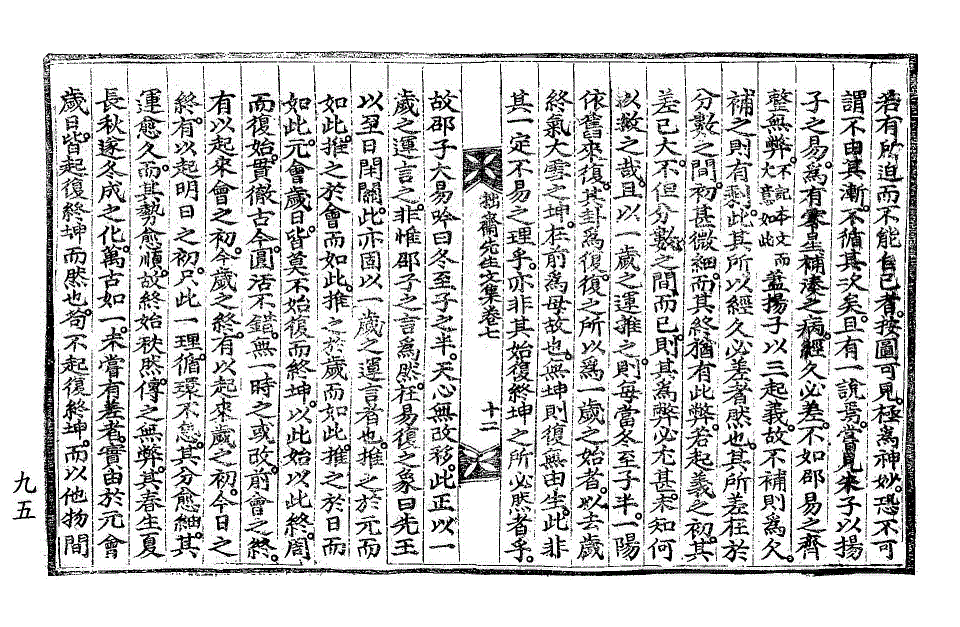 若有所迫而不能自已者。按圖可見。極爲神妙。恐不可
謂不由其漸。不循其次矣。且有一說焉。嘗見朱子以揚
子之易。爲有零星補湊之病。經久必差。不如邵易之齊
整無弊。不記本文而大意如此 蓋揚子以三起義。故不補則爲欠。
補之則有剩。此其所以經久必差者然也。其所差在於
分數之間。初甚微細。而其終猶有此弊。若起義之初。其
差已大。不但分數之間而已。則其爲弊必尤甚。未知何
以救之哉。且以一歲之運推之。則每當冬至子半。一陽
依舊來復。其卦爲復。復之所以爲一歲之始者。以去歲
終氣大雪之坤。在前爲母故也。無坤則復無由生。此非
其一定不易之理乎。亦非其始復終坤之所必然者乎。
拙齋先生文集卷七 十二
故邵子大易吟曰冬至子之半。天心無改移。此正以一
歲之運言之。非惟邵子之言爲然。在易復之象曰先王
以至日閉關。此亦固以一歲之運言者也。推之於元而
如此。推之於會而如此。推之於歲而如此。推之於日而
如此。元會歲日。皆莫不始復而終坤。以此始以此終。周
而復始。貫徹古今。圓活不錯。無一時之或改。前會之終。
有以起來會之初。今歲之終。有以起來歲之初。今日之
終。有以起明日之初。只此一理。循環不怠。其分愈細。其
運愈久。而其勢愈順。故終始秩然。傳之無弊。其春生夏
長秋遂冬成之化。萬古如一。未嘗有差者。實由於元會
歲日。皆起復終坤而然也。苟不起復終坤。而以他物間
九五